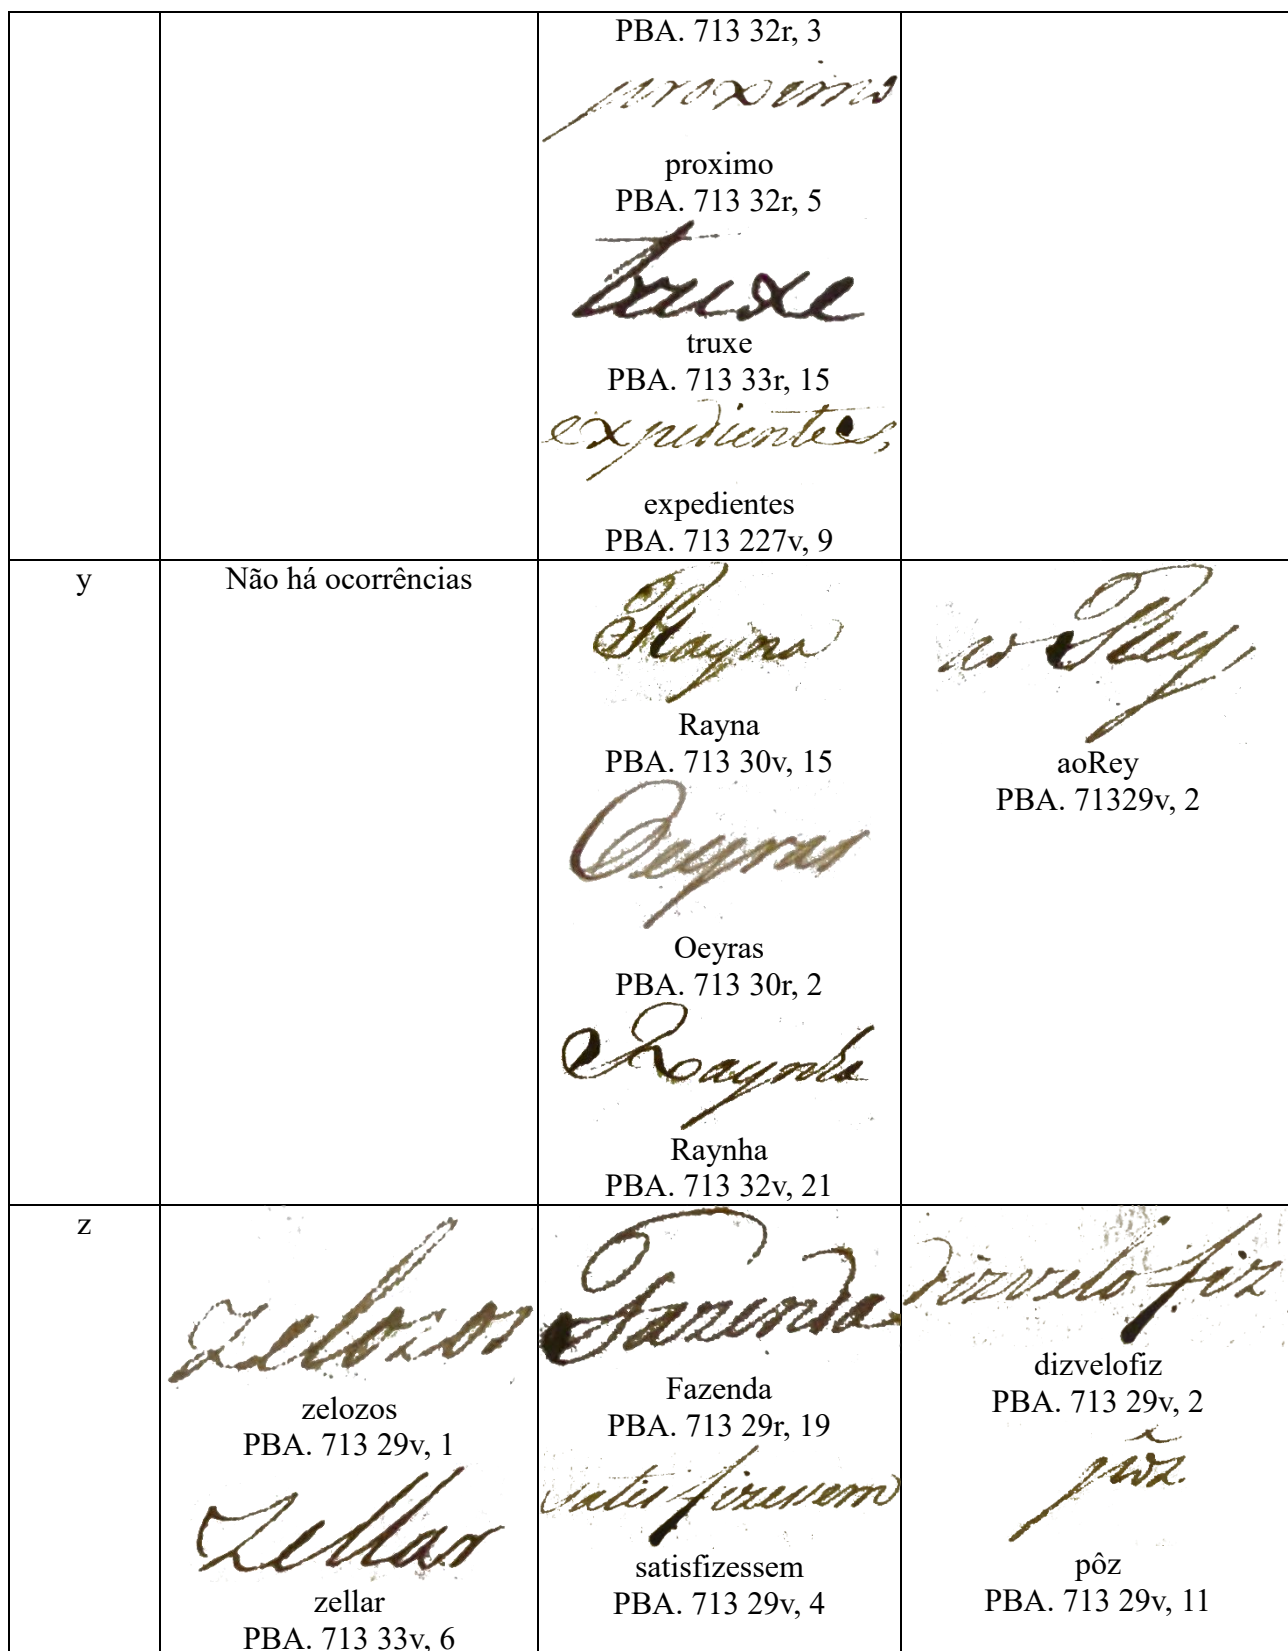 PBA. 713 32r, 3
proximo
proximo
PBA. 713 32r, 5
truxe
truxe
PBA. 713 33r, 15
expedientes,
expedientes
PBA. 713 227v, 9
y
Não há ocorrências
Rayna
Rayna
PBA. 713 30v, 15
Oeyras
Oeyras
PBA. 713 30r, 2
Raynha
Raynha
PBA. 713 32v, 21
ao Rey,
aoRey
PBA. 71329v, 2
z
zelozos
zelozos
PBA. 713 29v, 1
zellar
zellar
PBA. 713 33v, 6
Fazenda
Fazenda
PBA. 713 29r, 19
satisfizessem
satisfizessem
PBA. 713 29v, 4
dizvelo fiz
dizvelofiz
PBA. 713 29v, 2
pôz.
pôz
PBA. 713 29v, 11